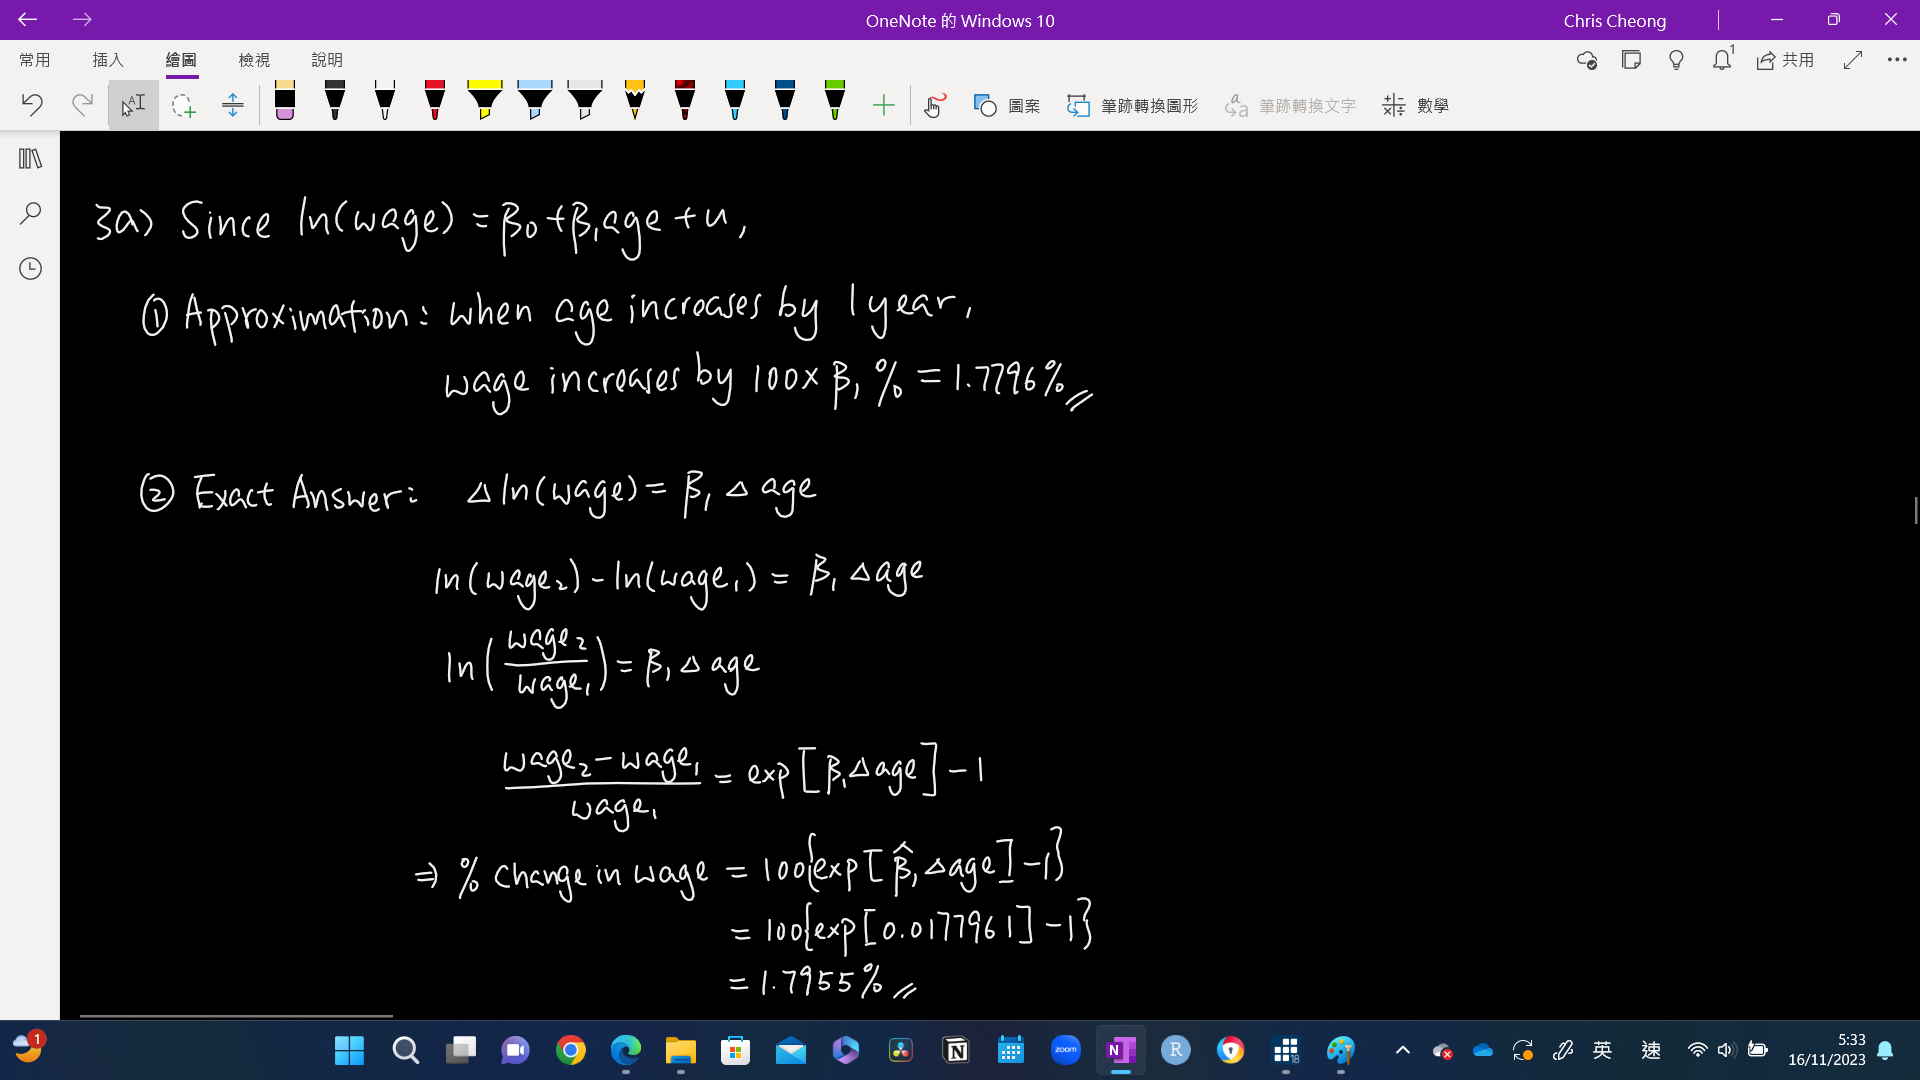 OneNote 的 Windows 10
Chris Cheong
常用 插入 繪圖 檢視 說明
1
共用
圖案 筆跡轉換圖形 筆跡轉換文字 數學
3a) Since ln(wage) = β₀+β₁age + u,
① Approximation: when age increases by 1 year,
wage increases by 100× β₁ % = 1.7796%
② Exact Answer: △ ln(wage) = β₁ △ age
ln(wage₂) - ln(wage₁) = β₁ △ age
ln(wage₂/wage₁) = β₁ △ age
(wage₂ - wage₁)/wage₁ = exp[β₁△age] - 1
⇒ % change in wage = 100{exp[β̂₁△age] - 1}
= 100{exp[0.0177961] - 1}
= 1.7955%
1
zoom
N
R
18
英
速
5:33
16/11/2023